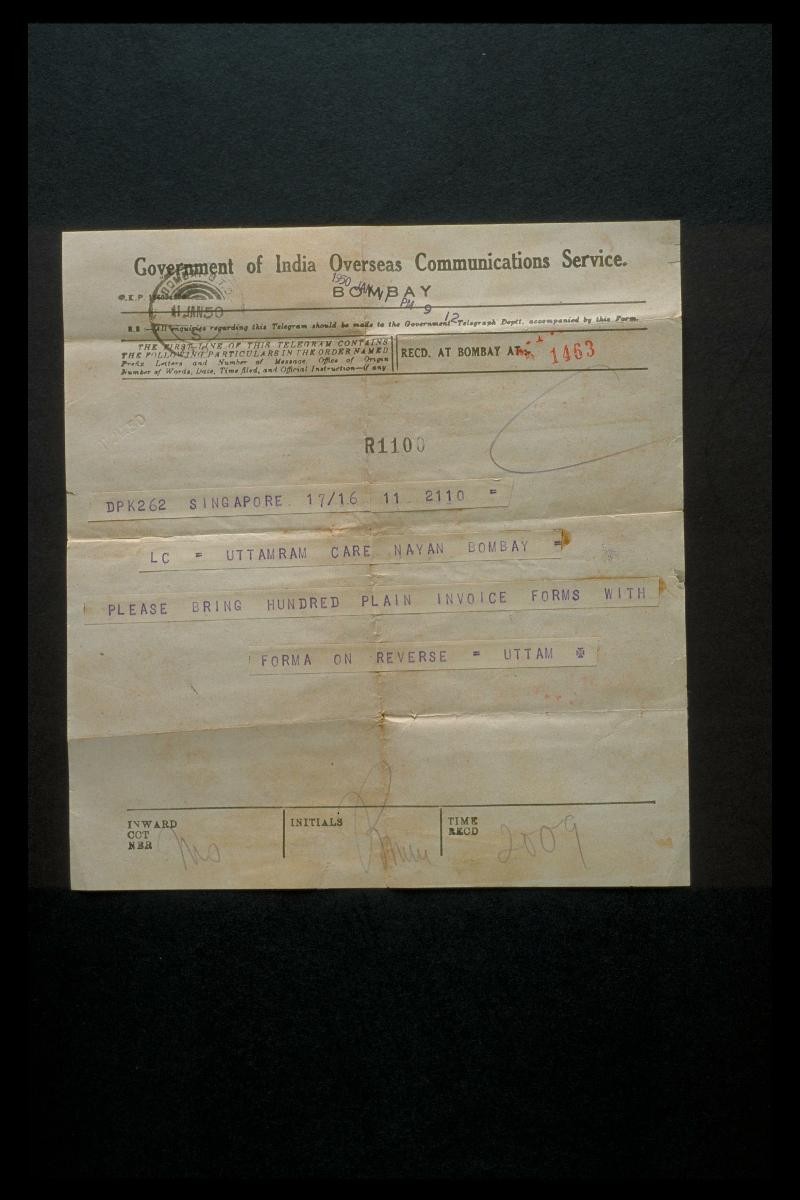 Government of India Overseas Communications Service.
BOMBAY
1950 JAN 11 PM 9 12
BOMBAY
11 JAN 50
N.B.—All enquiries regarding this Telegram should be made to the Government Telegraph Deptt. accompanied by this Form.
THE FIRST LINE OF THIS TELEGRAM CONTAINS
THE FOLLOWING PARTICULARS IN THE ORDER NAMED
Prefix Letters and Number of Message, Office of Origin
Number of Words, Date, Time filed, and Official Instruction—if any
RECD. AT BOMBAY AT 1463
R1100
DPK262 SINGAPORE 17/16 11 2110 =
LC = UTTAMRAM CARE NAYAN BOMBAY =
PLEASE BRING HUNDRED PLAIN INVOICE FORMS WITH
FORMA ON REVERSE = UTTAM
INWARD
CCT
NER
INITIALS
TIME
RECD
2009